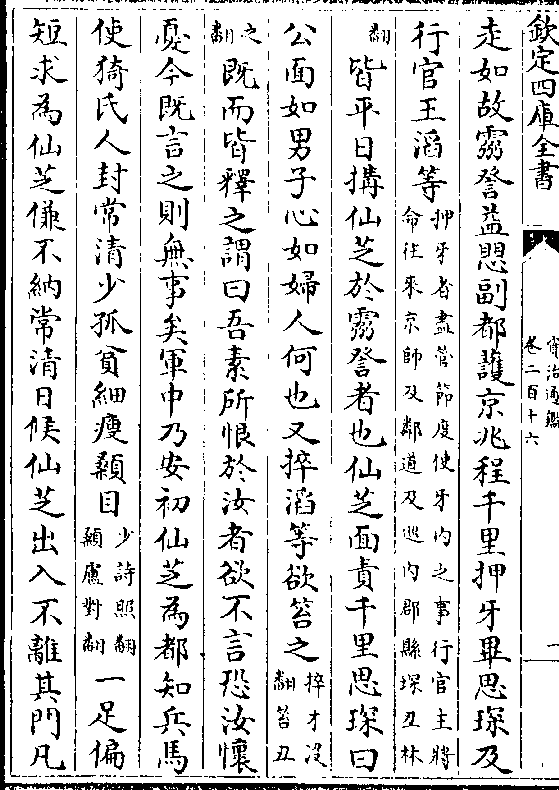 欽定四庫全書
資治通鑑
卷二百十六
一
走如故靈詧益愳副都護京兆程千里押牙畢思琛及
行官王滔等押牙者盡管節度使牙内之事行官主將
命往來京師及鄰道及廵内郡縣琛丑林
翻皆平日搆仙芝於靈詧者也仙芝面責千里思琛曰
公面如男子心如婦人何也又捽滔等欲笞之捽才没
翻笞丑
之
翻既而皆釋之謂曰吾素所恨於汝者欲不言恐汝懷
憂今既言之則無事矣軍中乃安初仙芝為都知兵馬
使猗氏人封常清少孤貧細瘦纇目少詩照翻
纇盧對翻一足偏
短求為仙芝傔不納常清日候仙芝出入不離其門凡